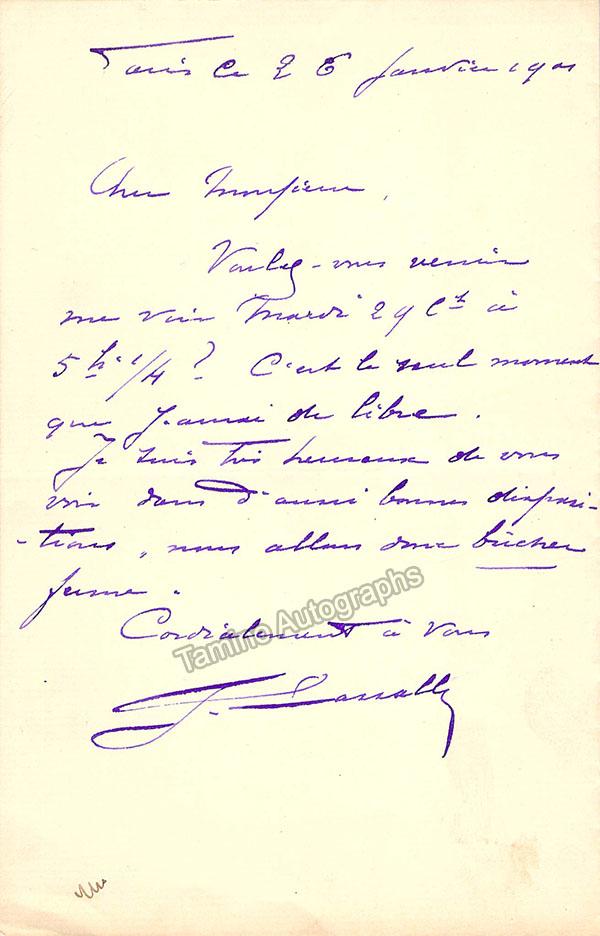 Paris le 26 Janvier 1901
Cher Monsieur,
Voulez-vous venir
me voir Mardi 29 ct à
5 hes 1/4 ? C'est le seul moment
que j'aurai de libre.
Je suis très heureux de vous
voir dans d'aussi bonnes disposi-
-tions, nous allons donc bûcher
ferme.
Cordialement à vous
J. Lassalle
Tamino Autographs